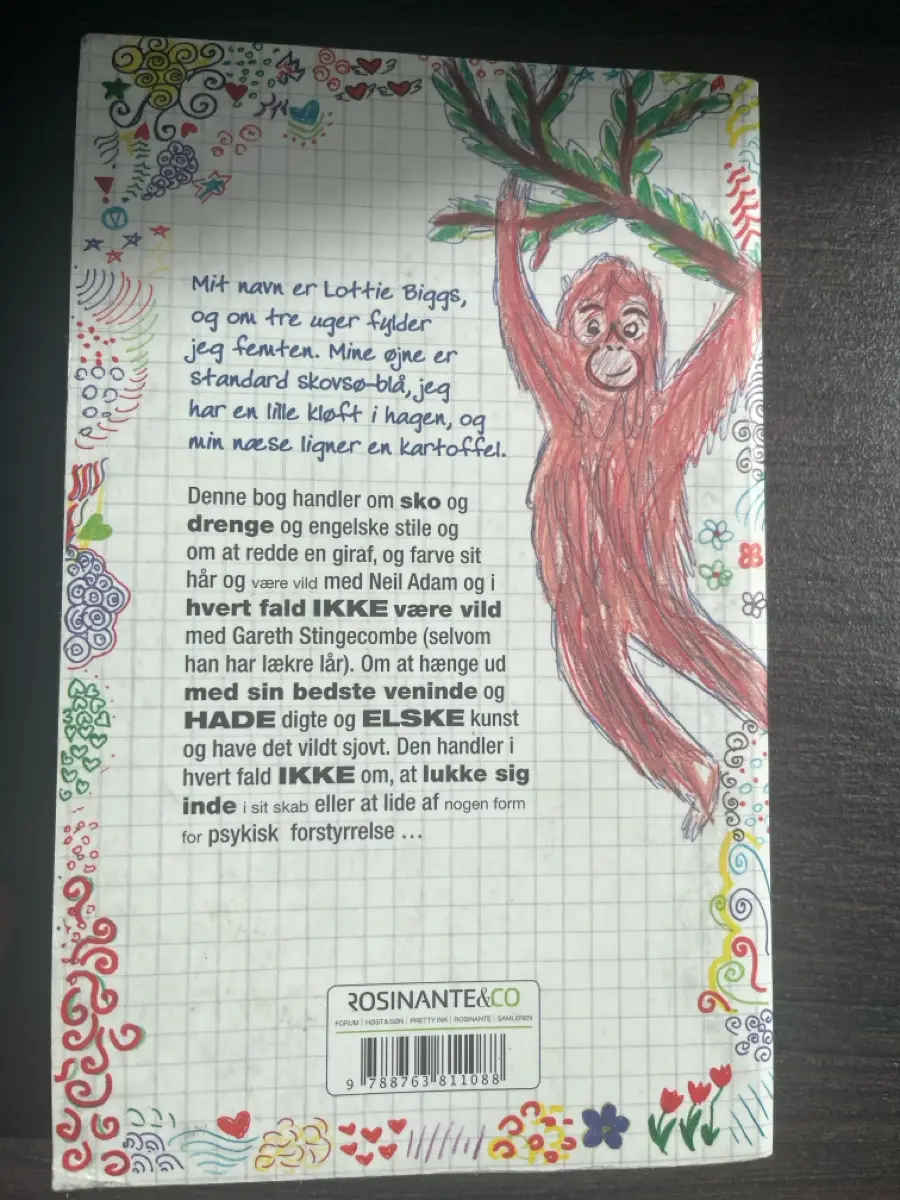 Mit navn er Lottie Biggs,
og om tre uger fylder
jeg femten. Mine øjne er
standard skovsø-blå, jeg
har en lille kløft i hagen, og
min næse ligner en kartoffel.
Denne bog handler om sko og
drenge og engelske stile og
om at redde en giraf, og farve sit
hår og være vild med Neil Adam og i
hvert fald IKKE være vild
med Gareth Stingecombe (selvom
han har lækre lår). Om at hænge ud
med sin bedste veninde og
HADE digte og ELSKE kunst
og have det vildt sjovt. Den handler i
hvert fald IKKE om, at lukke sig
inde i sit skab eller at lide af nogen form
for psykisk forstyrrelse ...
ROSINANTE&CO
FORUM | HØST & SØN | PRETTY INK | ROSINANTE | SAMLEREN
9 788763 811088